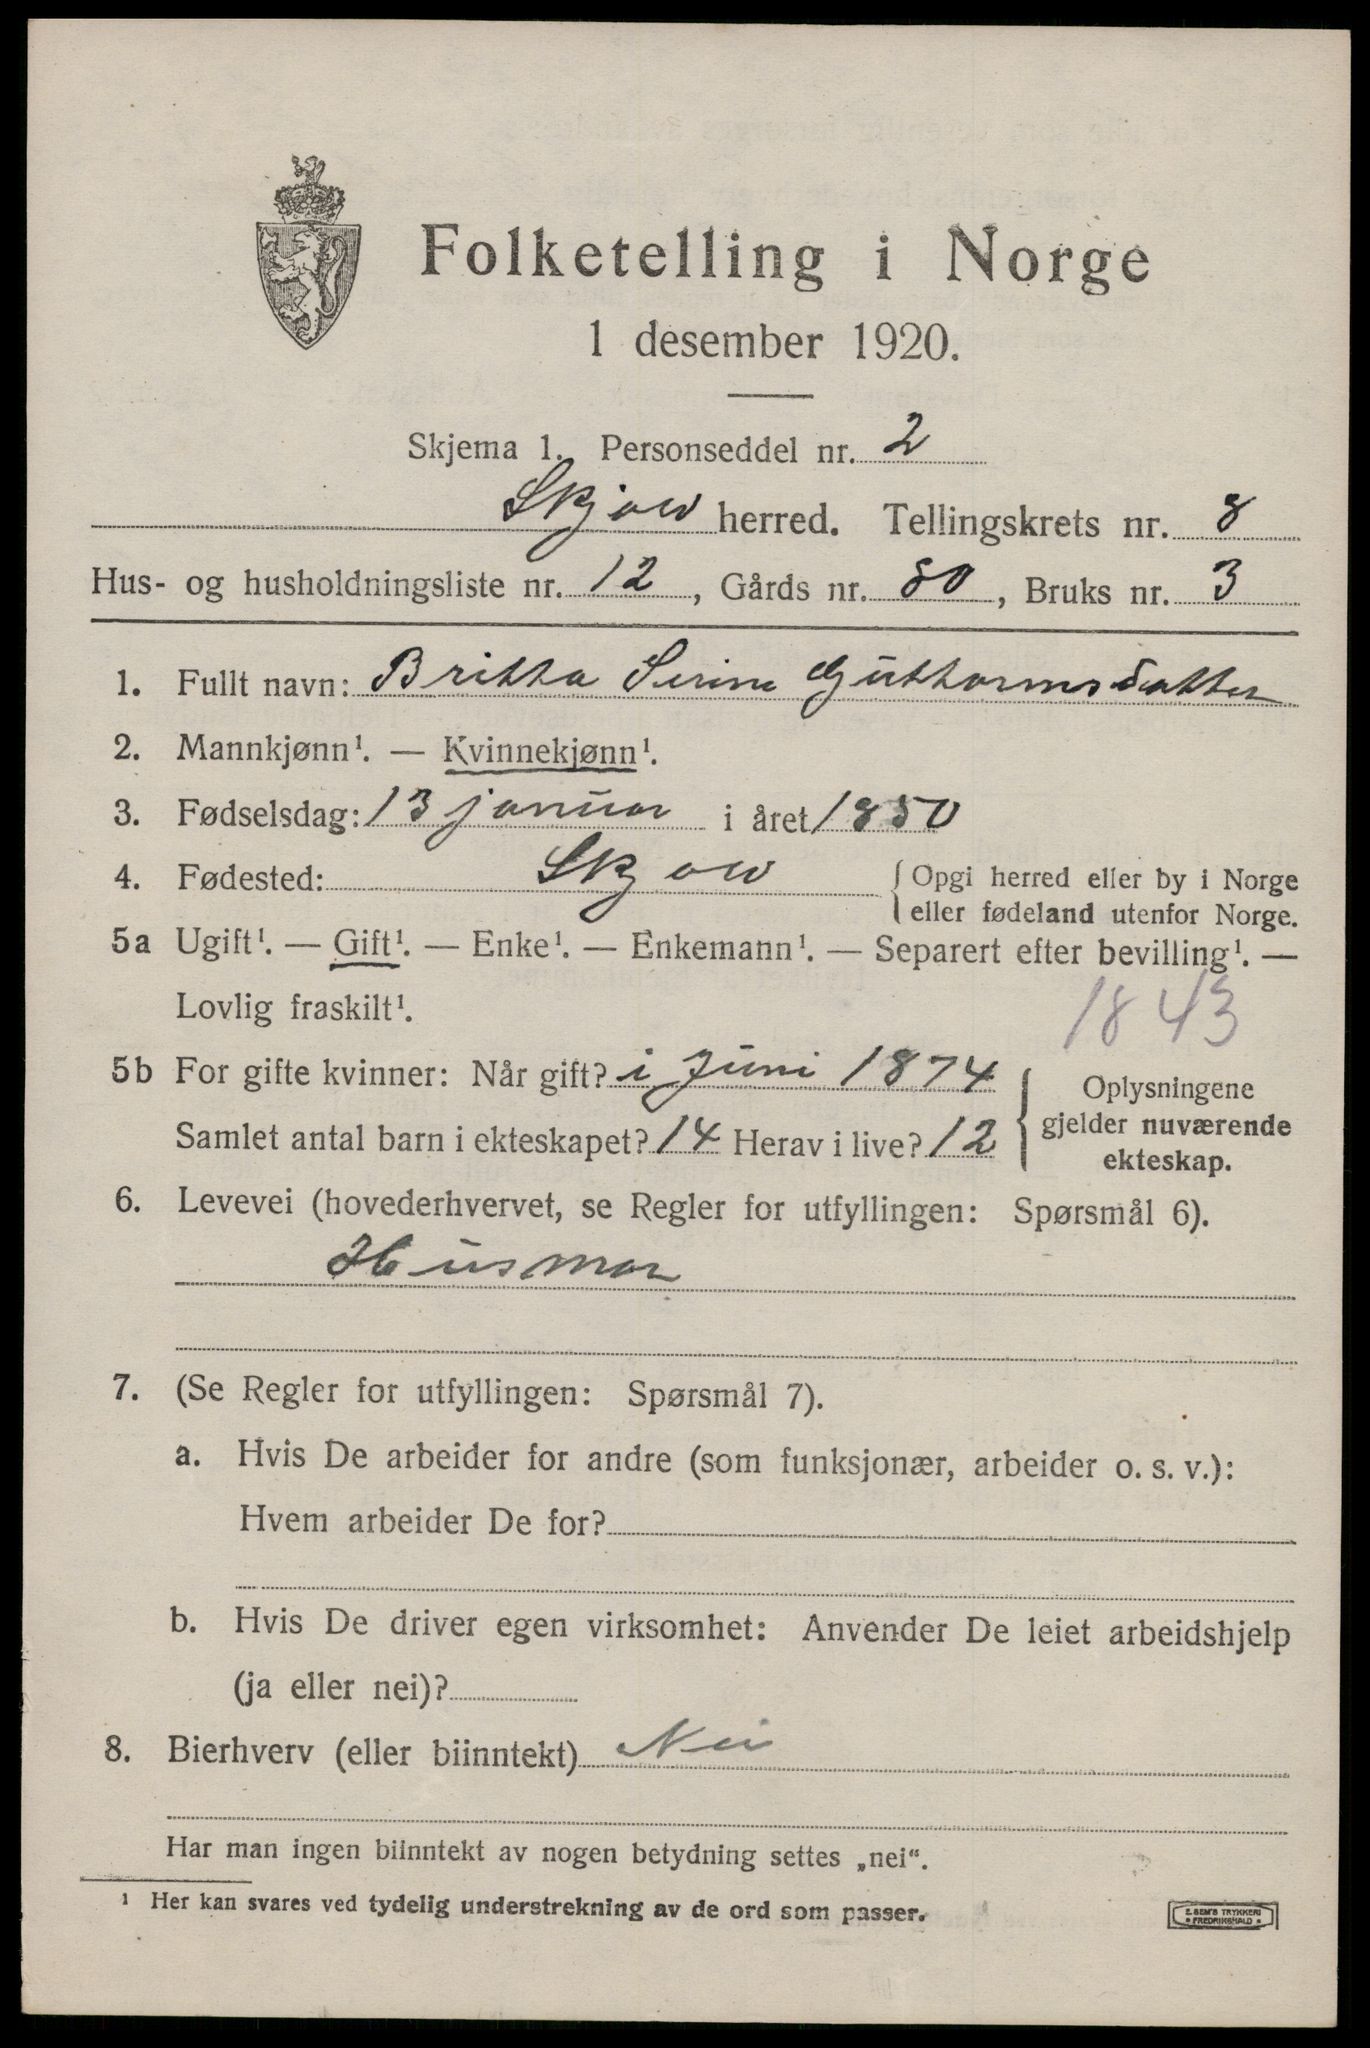 Folketelling i Norge
1 desember 1920.
Skjema 1. Personseddel nr. 2
Skjold herred. Tellingskrets nr. 8
Hus- og husholdningsliste nr. 12, Gårds nr. 80, Bruks nr. 3
1. Fullt navn: Britha Serine Guttormsdatter
2. Mannkjønn¹. — Kvinnekjønn¹.
3. Fødselsdag: 13 januar i året 1850
4. Fødested: Skjold { Opgi herred eller by i Norge
eller fødeland utenfor Norge.
5a Ugift¹. — Gift¹. — Enke¹. — Enkemann¹. — Separert efter bevilling¹. —
Lovlig fraskilt¹.
1843
5b For gifte kvinner: Når gift? i Juni 1874
Samlet antal barn i ekteskapet? 14 Herav i live? 12
{ Oplysningene
gjelder nuværende
ekteskap.
6. Levevei (hovederhvervet, se Regler for utfyllingen: Spørsmål 6).
Husmor
7. (Se Regler for utfyllingen: Spørsmål 7).
a. Hvis De arbeider for andre (som funksjonær, arbeider o. s. v.):
Hvem arbeider De for?
b. Hvis De driver egen virksomhet: Anvender De leiet arbeidshjelp
(ja eller nei)?
8. Bierhverv (eller biinntekt) Nei
Har man ingen biinntekt av nogen betydning settes „nei“.
¹ Her kan svares ved tydelig understrekning av de ord som passer.
E. SEM'S TRYKKERI
FREDRIKSHALD